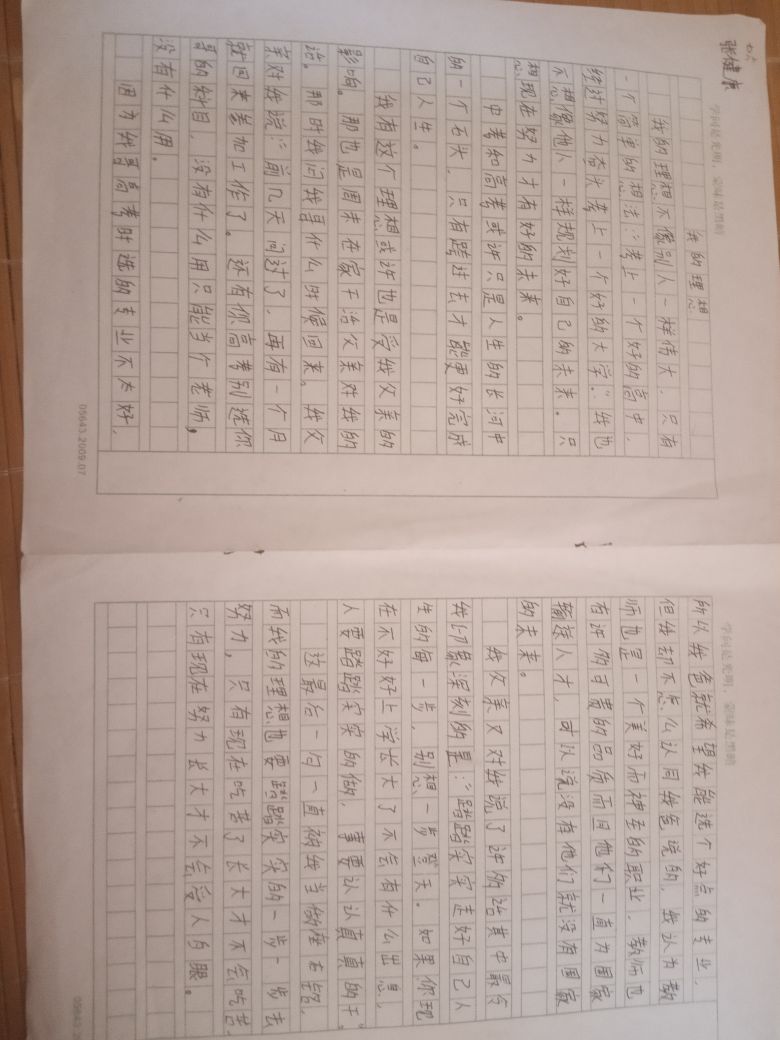 张健康
学问是光明，愚昧是黑暗
我的理想
我的理想不像别人一样伟大，只有
一个简单的想法:“考上一个好的高中，
经过努力奋头考上一个好的大学。”我也
不想像他人一样规划好自己的未来。只
想现在努力才有好的未来。
中考和高考或许只是人生的长河中
的一个石头，只有跨过去才能更好完成
自己人生。
我有这个理想或许也是受我父亲的
影响。那也是周末在家干活父亲对我的
话。那时我问我哥什么时候回来，我父
亲对我说:“前几天问过了，再有一个月
就回来参加工作了。还有你高考别选你
哥的科目，没有什么用只能当个老师，
没有什么用。
因为我哥高考时选的专业不太好，
05643.2009.07
学问是光明，愚昧是黑暗
所以我爸就希望我能选个好点的专业，
但我却不怎么认同我爸说的，我认为教
师也是一个美好而神圣的职业，教师也
有许多可贵的品质而且他们一直为国家
输送人才，可以说没有他们就没有国家
的未来。
我父亲又对我说了许多话其中最令
我印象深刻的是:“踏踏实实走好自己人
生的每一步，别想一步登天。如果你现
在不好好上学长大了不会有什么出息，
人要踏踏实实的做，事要认认真真的干。”
这最后一句一直被我当做座右铭，
而我的理想也要踏踏实实的一步一步去
努力，只有现在吃苦了长大才不会吃苦，
只有现在努力长大才不会受人白眼。
05643.2